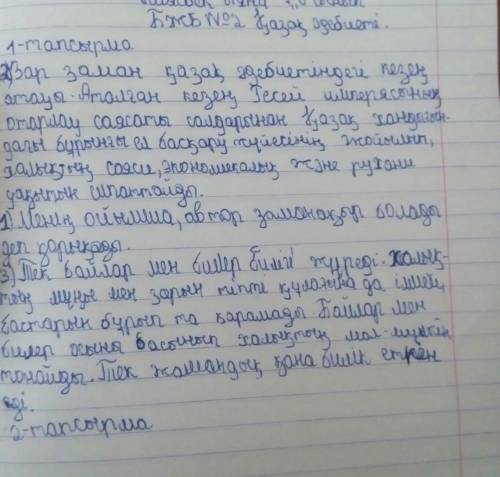 БЖБ №2 Қазақ әдебиеті.
1-тапсырма
2) Зар заман қазақ әдебиетіндегі кезең
атауы. Аталған кезең Ресей империясының
отарлау саясаты салдарынан Қазақ хандығын-
дағы бұрынғы ел басқару жүйесінің жойылып,
халықтың саяси, экономикалық және рухани
дағдысын сипаттайды.
1) Менің ойымша, автор заманақыр болады
деп қорқады.
3) Тек байлар мен билер билік жүреді. Халық-
тың мұңы мен зарын тіпті құлағына да ілмей,
бастарын бұрып та қарамады. Байлар мен
билер осыны басынып халықтың мал-мүлкін
тонайды. Тек жамандық қана билік еткен
еді.
2-тапсырма